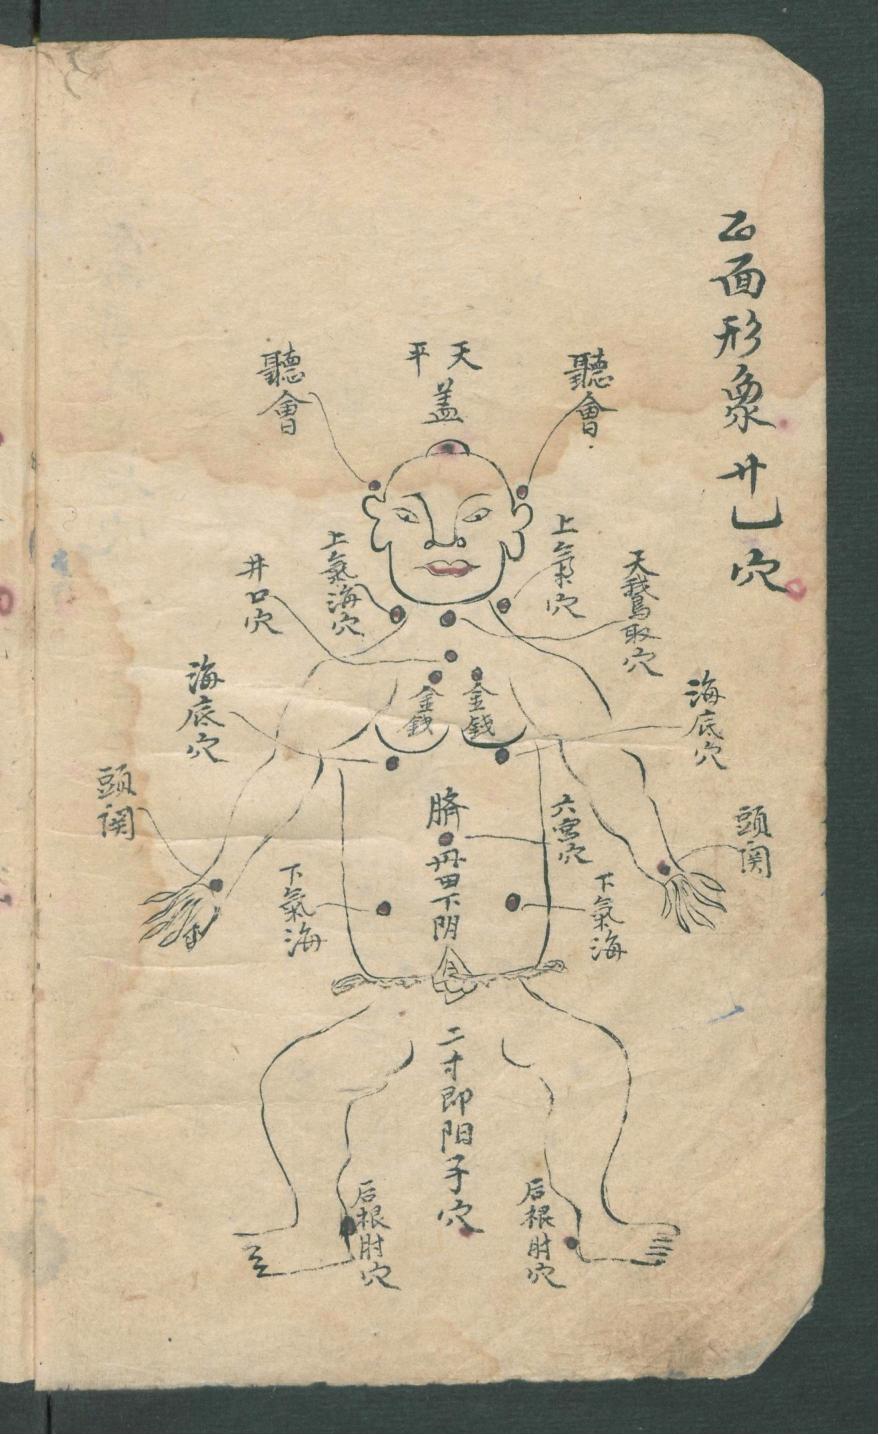 正面形象廿乚穴
聽會
天平
盖
聽會
上氣穴
天鵝取穴
上氣海穴
井口穴
金錢
金錢
海底穴
海底穴
頭関
頭関
臍
六宮穴
丹田下阴
下氣海
下氣海
二寸即阳子穴
后根肘穴
后根肘穴